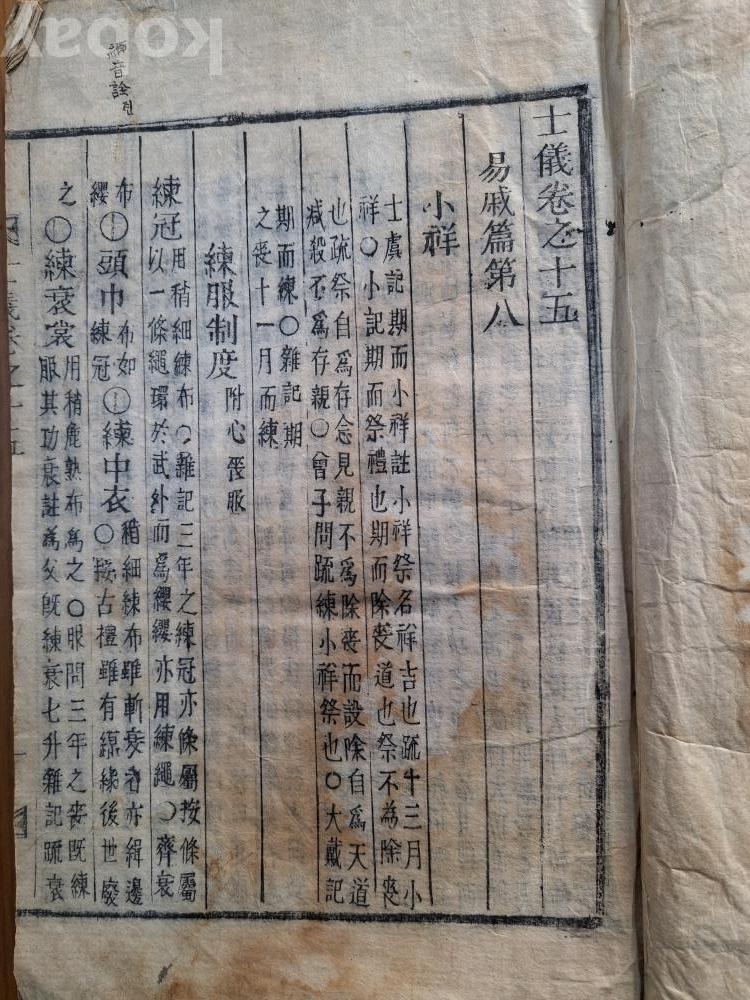 士儀卷之十五
易戚篇第八
小祥
士虞記期而小祥註小祥祭名祥吉也疏十三月小
祥○小記期而祭禮也期而除喪道也祭不為除喪
也疏祭自為存念見親不為除喪而設除自為天道
减殺不為存親○曾子問疏練小祥祭也○大戴記
期而練○雜記期
之喪十一月而練
練服制度 附心喪服
練冠 用稍細練布○雜記三年之練冠亦條屬按條屬
以一條繩環於武外而為纓纓亦用練繩○齊衰
布
纓 ○頭巾 布如
練冠 ○練中衣 稍細練布雖斬衰者亦緝邊
○按古禮雖有縓緣後世廢
之○練衰裳 用稍麁熟布為之○服問三年之喪既練
服其功衰註為父既練衰七升雜記疏衰
士儀卷之十五
音詮
kobay